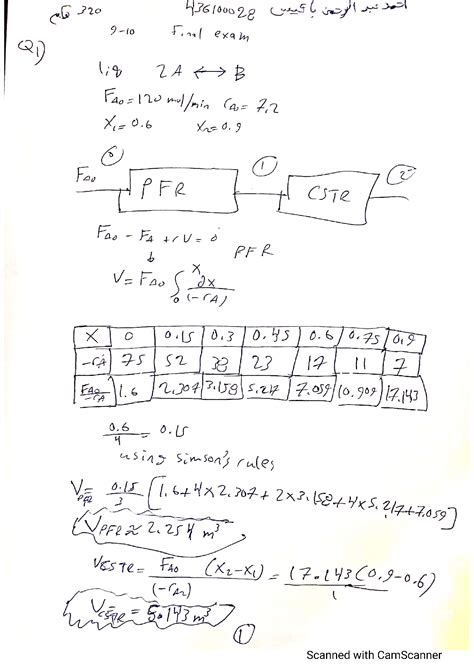 320 436100028 احمد عبد الرحمن
9-10 Final exam
Q1)
liq 2A ↔ B
FA0 = 120 mol/min CA0 = 7,2
X1 = 0.6 X2 = 0.9
FA0 ⓪ PFR ① CSTR ②
FA0 - FA + rV = 0 PFR
V = FA0 ∫₀ˣ dx/(-rA)
X 0 0.15 0.3 0.45 0.6 0.75 0.9
-rA 75 52 38 23 17 11 7
FA0/-rA 1.6 2.307 3.158 5.217 7.059 10.909 17.143
0.6/4 = 0.15
using simson's rules
VPFR = 0.15/3 [1.6+4×2.307+2×3.158+4×5.217+7.059]
VPFR ≈ 2.254 m³
VCSTR = FA0/(-rA2) (X2-X1) = 17.143(0.9-0.6)/1
VCSTR = 5.143 m³
①
Scanned with CamScanner